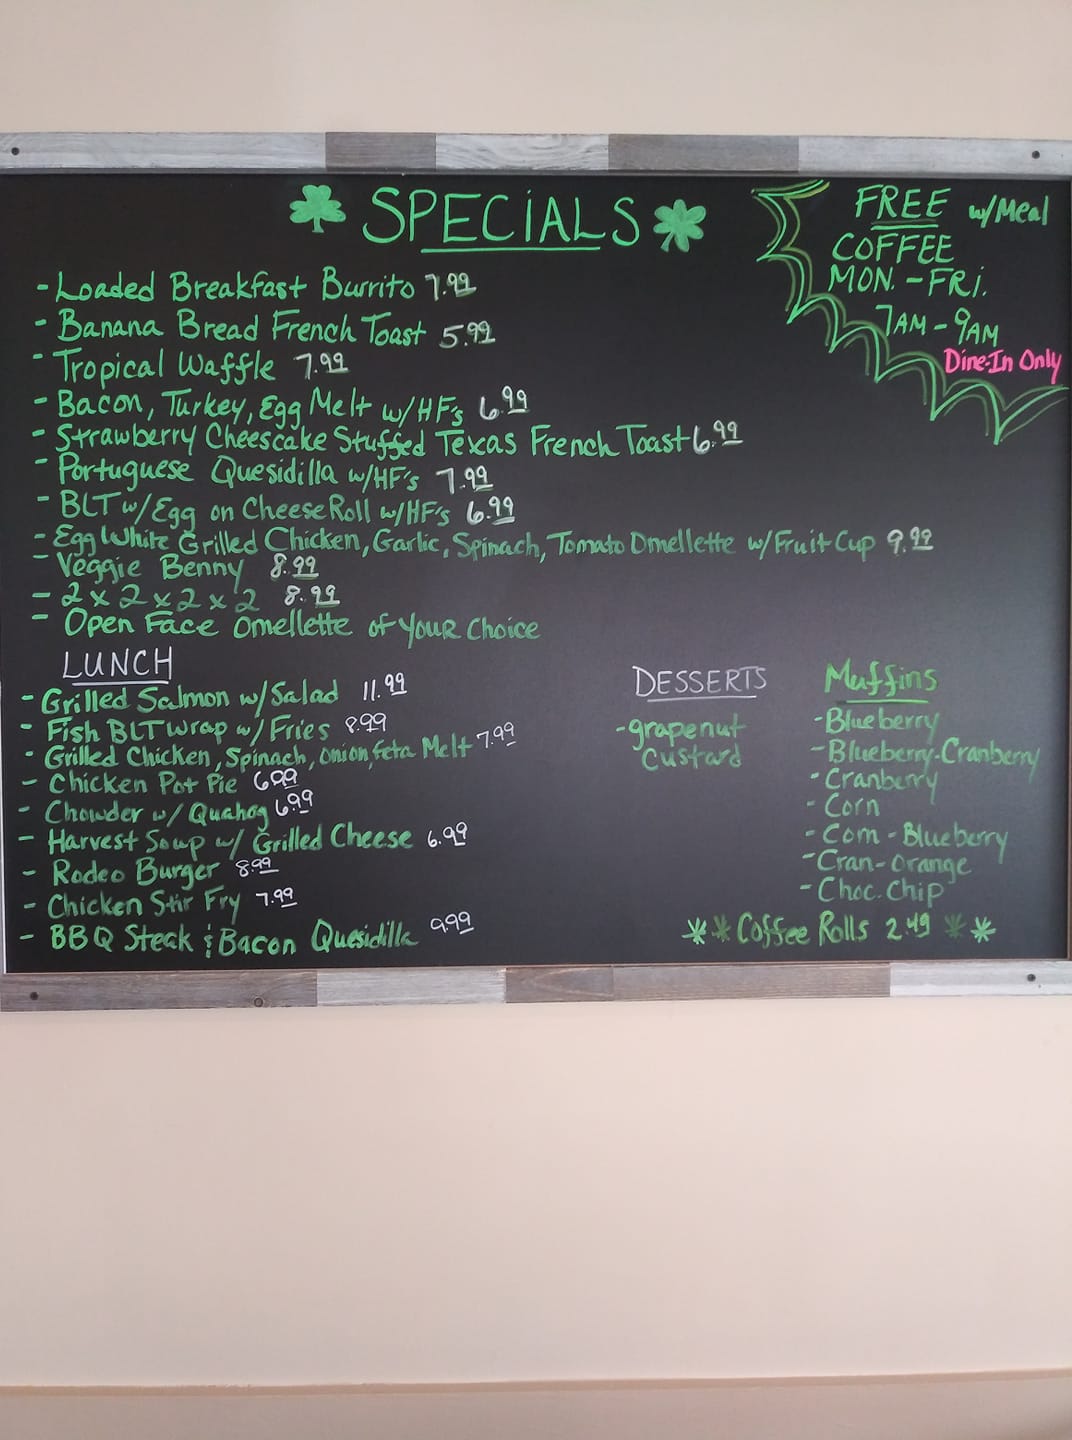 SPECIALS
- Loaded Breakfast Burrito 7.99
- Banana Bread French Toast 5.99
- Tropical Waffle 7.99
- Bacon, Turkey, Egg Melt w/HF's 6.99
- Strawberry Cheescake Stuffed Texas French Toast 6.99
- Portuguese Quesidilla w/HF's 7.99
- BLT w/Egg on Cheese Roll w/HF's 6.99
- Egg White Grilled Chicken, Garlic, Spinach, Tomato Omellette w/Fruit Cup 9.99
- Veggie Benny 8.99
- 2 x 2 x 2 x 2 8.99
- Open Face Omellette of Your Choice
FREE w/Meal
COFFEE
MON. - FRi.
7AM - 9AM
Dine-In Only
LUNCH
- Grilled Salmon w/Salad 11.99
- Fish BLT Wrap w/ Fries 8.99
- Grilled Chicken, Spinach, Onion, feta Melt 7.99
- Chicken Pot Pie 6.99
- Chowder w/ Quahog 6.99
- Harvest Soup w/ Grilled Cheese 6.99
- Rodeo Burger 8.99
- Chicken Stir Fry 7.99
- BBQ Steak & Bacon Quesidilla 9.99
DESSERTS
- grapenut
custard
Muffins
- Blueberry
- Blueberry-Cranberry
- Cranberry
- Corn
- Corn - Blueberry
- Cran-Orange
- Choc. Chip
** Coffee Rolls 2.49 **